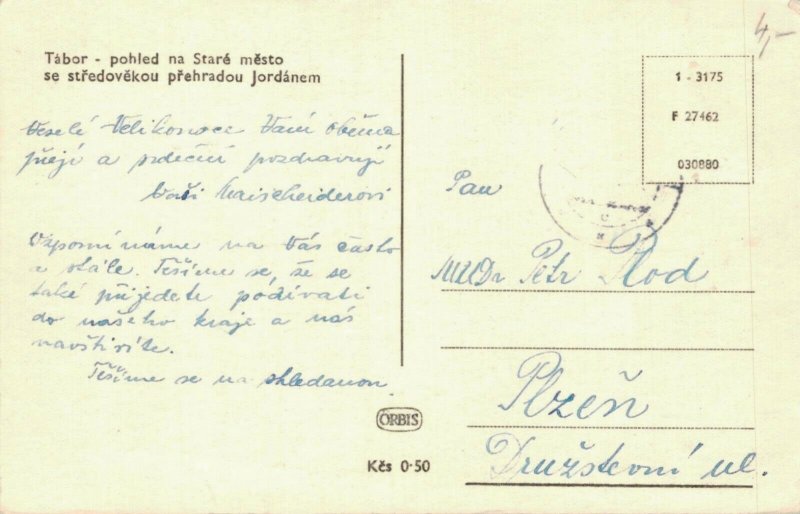 Tábor - pohled na Staré město
se středověkou přehradou Jordánem
Veselé Velikonoce Vám oběma
přejí a srdečně pozdravují
Vaši
Vzpomínáme na Vás často
a stále. Těšíme se, že se
také přijedete podívati
do našeho kraje a nás
navštívíte.
Těšíme se na shledanou.
ORBIS
Kčs 0·50
4,-
1 - 3175
F 27462
030880
Pan
MUDr Petr Plod
Plzeň
Družstevní ul.